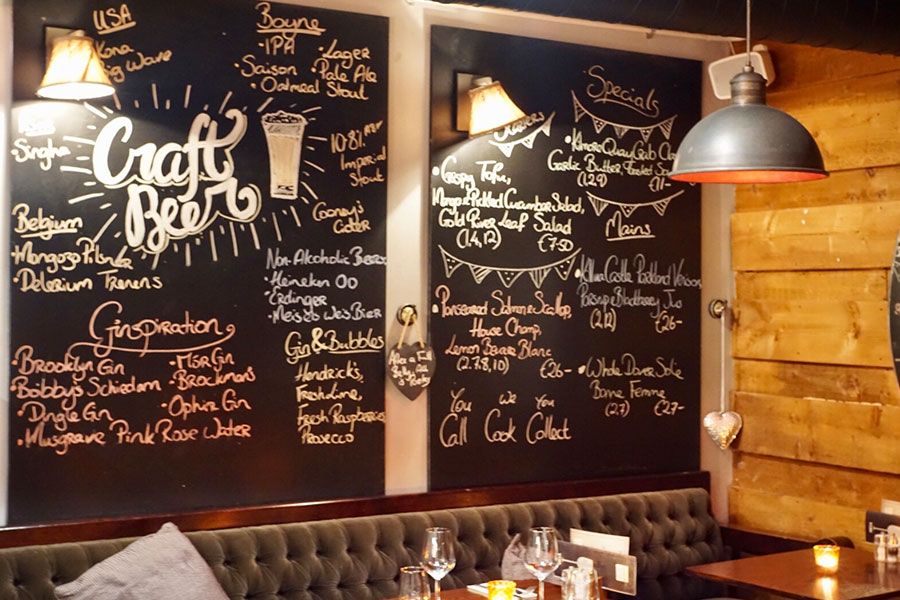 USA
Kona
Big Wave
Boyne
• IPA
• Saison
• Oatmeal Stout
• Lager
• Pale Ale
• Singha
Craft
Beer
10.8%
Imperial
Stout
Cooney's
Cider
Belgium
• Mongozo Pilsner
• Delerium Tremens
Non-Alcoholic Beers
• Heineken 0.0
• Erdinger
Ginspiration
• Brooklyn Gin
• Bobbys Schiedam
• Dingle Gin
• Musgrave Pink Rose Water
• Msr Gin
• Brockman's
• Ophir Gin
Gin & Bubbles
Hendrick's,
Fresh Lime,
Fresh Raspberries
Prosecco
Specials
Starters
• Crispy Tofu,
Mango & Pickled Cucumber Salad,
Gold River Leaf Salad
(1,4,12) €7.50
• Kilmore Quay Crab
Garlic Butter, Toasted
(1,2,9) €11-
Mains
• Panseared Salmon & Scallop,
House Champ,
Lemon Beurre Blanc
(2,7,8,10) €26-
Castle Parkland Venison,
Parsnip & Blackberry Jus
(2,12) €26-
• Whole Dover Sole
Bonne Femme
(2,7) €27-
You We You
Call Cook Collect